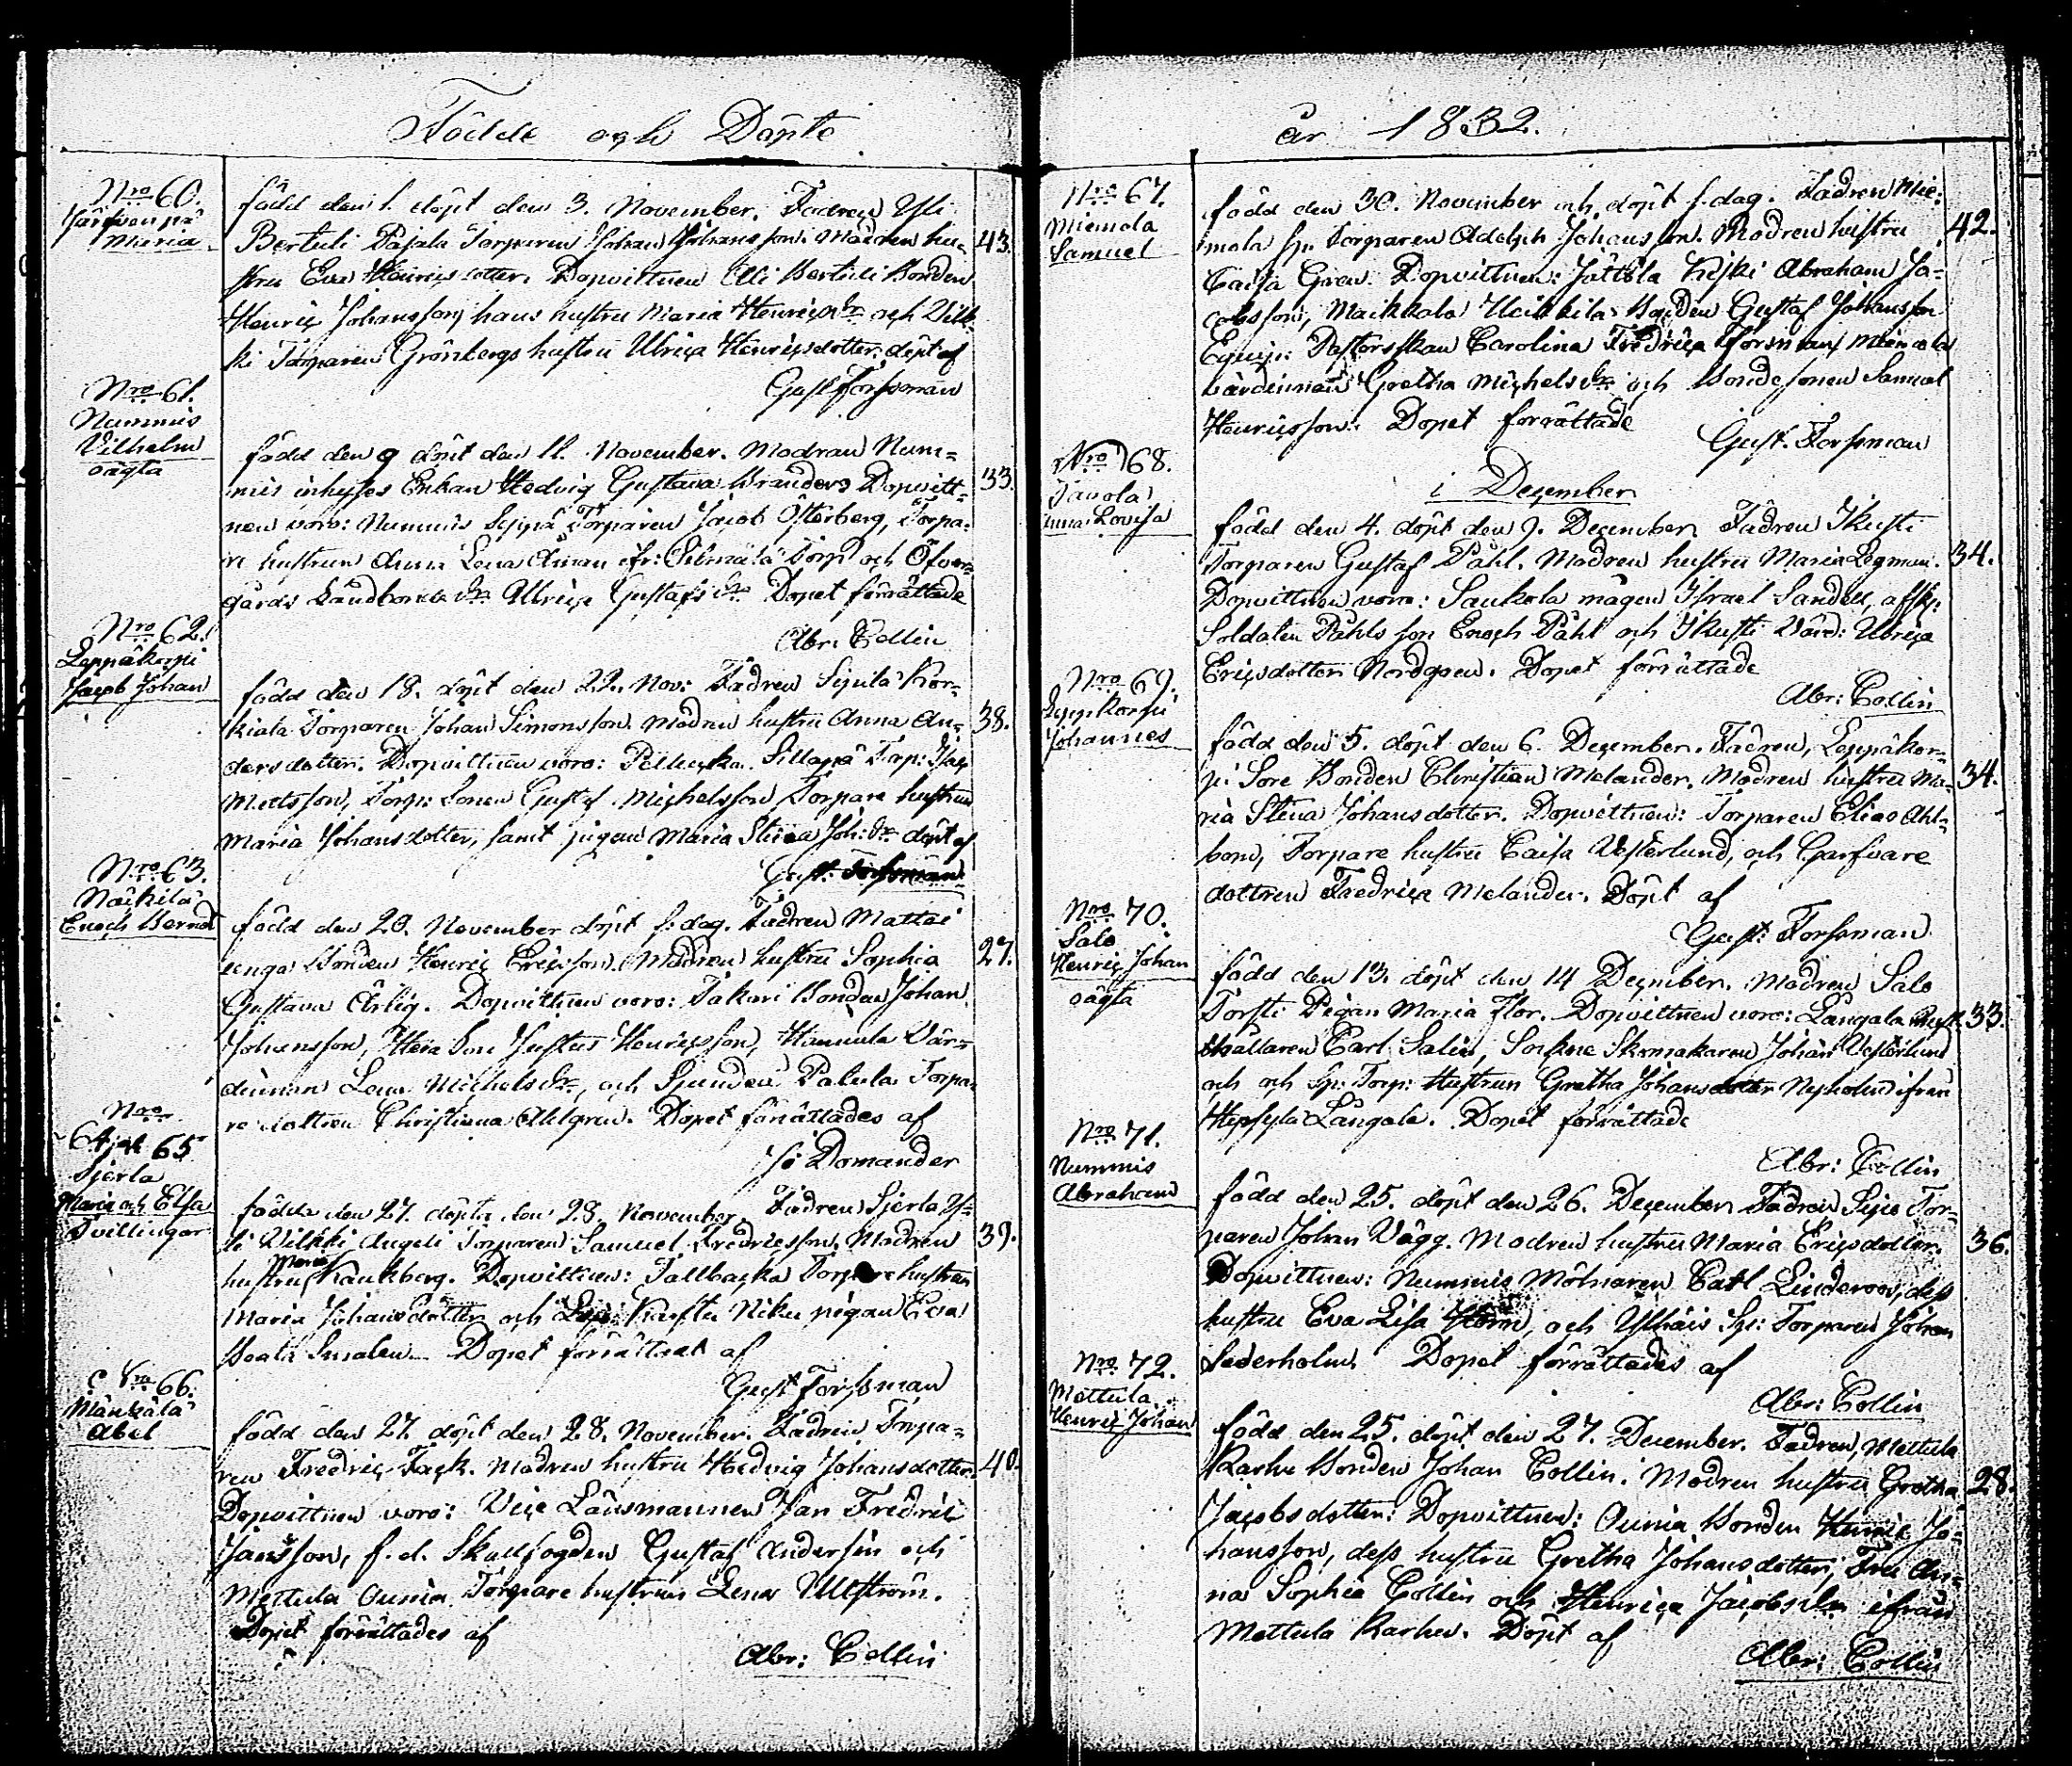 Födde och Döpte
Nro 60.
Järfvenpä
Maria
född den 1. döpt den 3. November. Fadren Yli
Bertuli Pajala Torparen Johan Johansson. Modren hu-
stru Eva Henricsdotter. Dopvittnen Ali Bertuli Bonden
Henric Johansson, hans hustru Maria Henricsdr och Vilk-
ki Torparen Grönbergs hustru Ulrica Henricsdotter, döpt af
Gust Forssman
43.
Nro 61.
Nummis
Vilhelm
oägta
född den 9 döpt den 11. November. Modran Num-
mis inhyses Enkan Hedvig Gustava Branders Dopvitt-
nen voro: Nummis Seppä Torparen Jacob Österberg, Torpa-
re hustrun Anna Lena Aman ifr: Torp och Öfver-
gårds Landbonde dr Ulrica Gustafsdr. Dopet förrättade
Abr: Collin
33.
Nro 62.
Leppäkorpi
Jacob Johan
född den 18. döpt den 22. Nov: Fadren Sipilä Kor-
kiala Torparen Johan Simonsson. Modren hustru Anna An-
dersdotter. Dopvittnen voro: Pellucka Sillapä Torp: Jac
Mattsson, Torp: Sonen Gustaf Michelsson Torpare hustrun
Maria Johansdotter, samt pigan Maria Stina Joh: dr döpt af
Gust: Forssman
38.
Nro 63.
Näckilä
Enoch Bernd
född den 20. November döpt s. dag. Fadren Mattai
unga Bonden Henric Ericsson. Modren hustru Sophia
Gustava Ärlig. Dopvittnen voro: Takari Bonden Johan
Johansson, Son Justus Henricsson, Hannula Vär-
dinnan Lena Michelsdr, och Sjundeå Palula Torpa-
re dottren Christiana Ahlgren. Dopet förrättades af
Jo Domander
27.
Nro
64 och 65
Sjerla
Maria och Elsa
Tvillingar
födde den 27. döpte den 28. November. Fadren Sjerla Y-
li Vilkki Angeli Torparen Samuel Fredricsson, Modren
hustru Maria Kankberg. Dopvittnen: Tallbacka Torpare hustrun
Maria Johansdotter och Karsta Niku pigan Eva
Beata Smalen. Dopet förrättat af
Gust Forssman
39.
Nro 66.
Mänkälä
Abel
född den 27. döpt den 28. November. Fadren, Torpa-
ren Fredric Fack. Modren hustru Hedvig Johansdotter.
Dopvittnen voro: Vice Länsmannen Jan Fredric
Jansson, f. d. Skallfogden Gustaf Andersin och
Mettula Ounia Torpare hustrun Lena Ulfström.
Dopet förrättades af
Abr: Collin
40.
år 1832.
Nro 67.
Miemola
Samuel
född den 30. November och döpt s. dag. Fadren Mie-
mola Sp. Torparen Adolph Johansson. Modren hustru
Caisa Gren. Dopvittnen: Jättölä Kiski Abraham Ja-
cobsson, Maikkala Heikkilä Bonden Gustaf Johansson
Equip: Pastorskan Carolina Fredrica Forsman, Miemola
värdinnan Gretha Michelsdr och Bondesonen Samuel
Henricsson. Dopet förrättade
Gust. Forssman
42.
i December
Nro 68.
Tavola
Anna Lovisa
född den 4. döpt den 9. December. Fadren Ikusti
Torparen Gustaf Påhl. Modren hustru Maria Legman.
Dopvittnen voro: Saukola mågen Israel Sandell, afsk:
Soldaten Påhls son Enoch Påhl och Ikusti Värd: Ulrica
Ericsdotter Nordgren. Dopet förrättade
Abr: Collin
34.
Nro 69.
Leppkorpi
Johannes
född den 5. döpt den 6. December. Fadren, Leppäkor-
pi Sore Bonden Christian Melander. Modren hustru Ma-
ria Stina Johansdotter. Dopvittnen: Torparen Elias Ahl-
bom, Torpare hustru Caisa Vesterlund, och Garfvare
dottren Fredrica Melander. Döpt af
Gust: Forssman
34.
Nro 70.
Salo
Henric Johan
oägta
född den 13. döpt den 14 December. Modren Salo
Torsti Pigan Maria Flor. Dopvittnen voro: Långala Gust
hållaren Carl Salin, Sockne Skomakaren Johan Vesterlund
och och Sp: Torp: Hustrun Gretha Johansdotter Nyholm ifrån
Långala. Dopet förrättade
Abr: Collin
33.
Nro 71.
Nummis
Abraham
född den 25. döpt den 26. December Fadren Tor-
paren Johan Vägg. Modren hustru Maria Ericsdotter.
Dopvittnen: Nummis Mölnaren Carl Linderoos, dess
hustru Eva Lisa och Ylhäis Sp: Torparen Johan
Sederholm. Dopet förrättades af
Abr: Collin
36.
Nro 72.
Mettula
Henric Johan
född den 25. döpt den 27. December. Fadren, Mettula
Karhu Bonden Johan Collin. Modren hustru Gretha
Jacobsdotter. Dopvittnen: Ounia Bonden Henric Jo-
hansson, dess hustru Gretha Johansdotter, Fru An-
na Sophia Collin och Henrica Jacobsdr ifrån
Mettula Karhu. Döpt af
Abr: Collin
28.